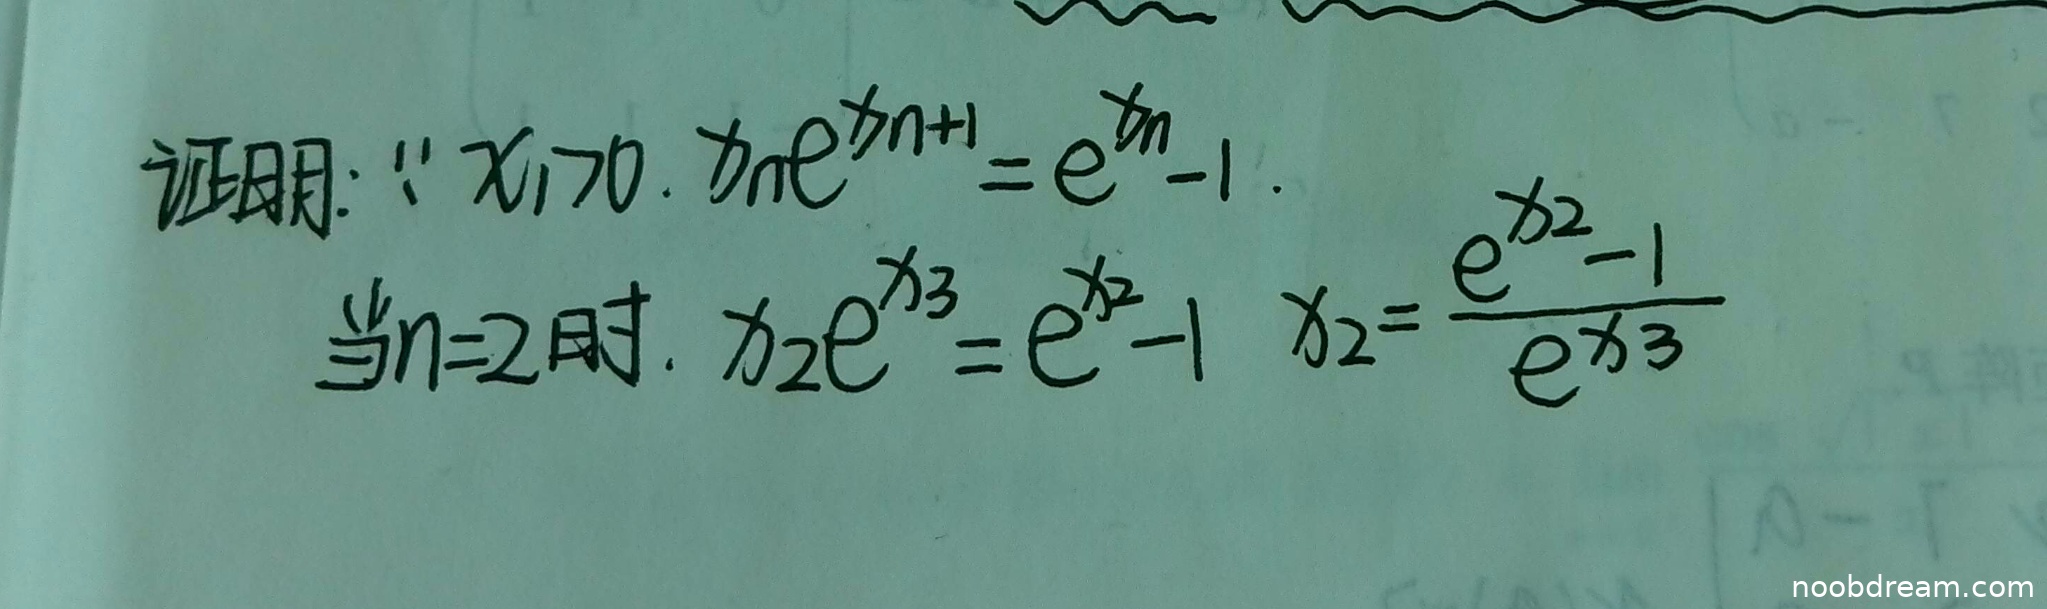 证明: ∵ x₁>0. xₙe^{xₙ₊₁} = e^{xₙ} - 1.
当n=2时. x₂e^{x₃} = e^{x₂} - 1 x₂ = \frac{e^{x₂} - 1}{e^{x₃}}
noobdream.com